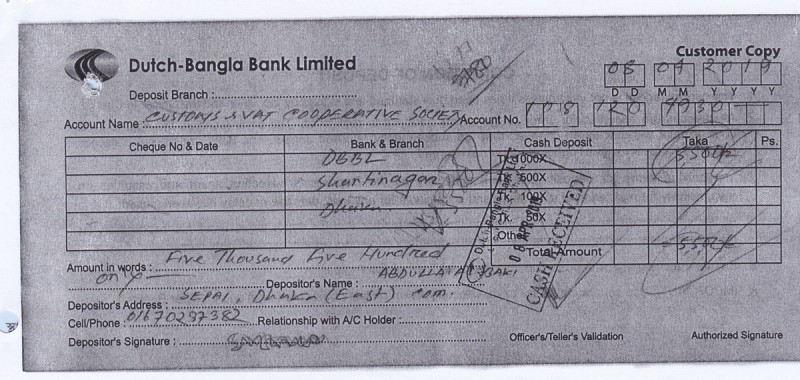 Customer Copy
Dutch-Bangla Bank Limited
08 04 2019
D D M M Y Y Y Y
Deposit Branch :
Account Name : CUSTOMS & VAT COOPERATIVE SOCIETY Account No. 108 120
Cheque No & Date Bank & Branch Cash Deposit Taka Ps.
DBBL Tk. 1000X
Shantinagar Tk. 500X
Dhaka Tk. 100X
Tk. 50X
Other
Total Amount
Amount in words : Five Thousand Five Hundred
only
Depositor's Name : ABDULLA AL BAKI
Depositor's Address : SEPAI, Dhaka (East) com.
Cell/Phone : 01670297382 Relationship with A/C Holder :
Depositor's Signature :
Officer's/Teller's Validation Authorized Signature
Dutch-Bangla Bank
08 APR 2019
CASH RECEIVED